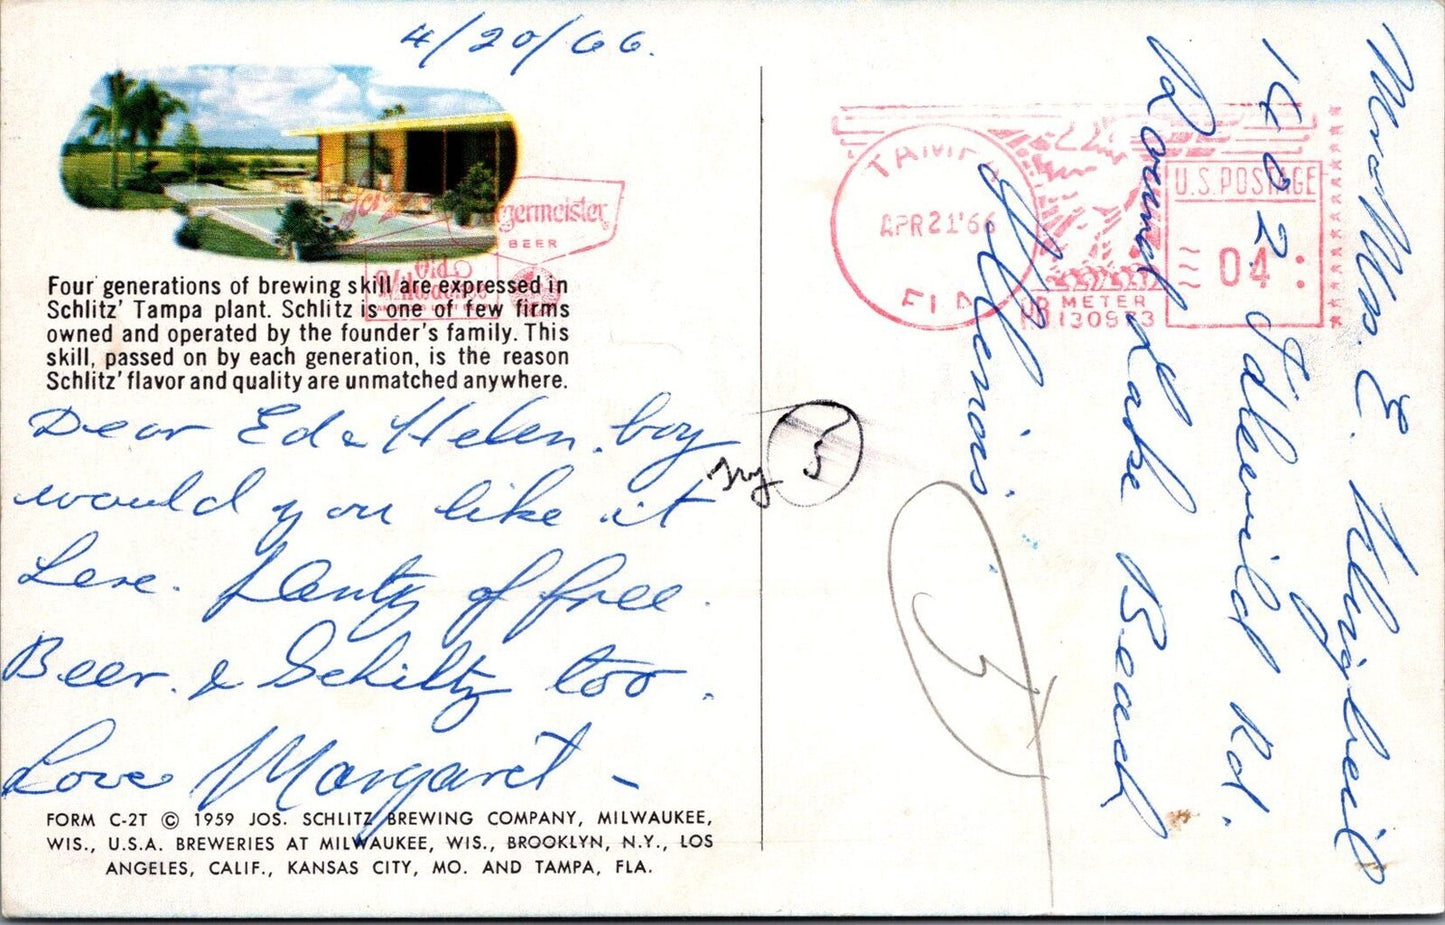 4/20/66.
Schlitz
Burgermeister
BEER
Old
Milwaukee
Four generations of brewing skill are expressed in
Schlitz' Tampa plant. Schlitz is one of few firms
owned and operated by the founder's family. This
skill, passed on by each generation, is the reason
Schlitz' flavor and quality are unmatched anywhere.
Dear Ed & Helen. boy
would you like it
here. plenty of free.
Beer. & Schiltz too.
Love Margaret –
FORM C-2T © 1959 JOS. SCHLITZ BREWING COMPANY, MILWAUKEE,
WIS., U.S.A. BREWERIES AT MILWAUKEE, WIS., BROOKLYN, N.Y., LOS
ANGELES, CALIF., KANSAS CITY, MO. AND TAMPA, FLA.
try 5
5
TAMPA
APR 21 '66
FLA
U.S. POSTAGE
04
PB METER
130973
Mr & Mrs. E. Klingbeil
1402 Idlewild Rd.
Round Lake Beach
Illinois.